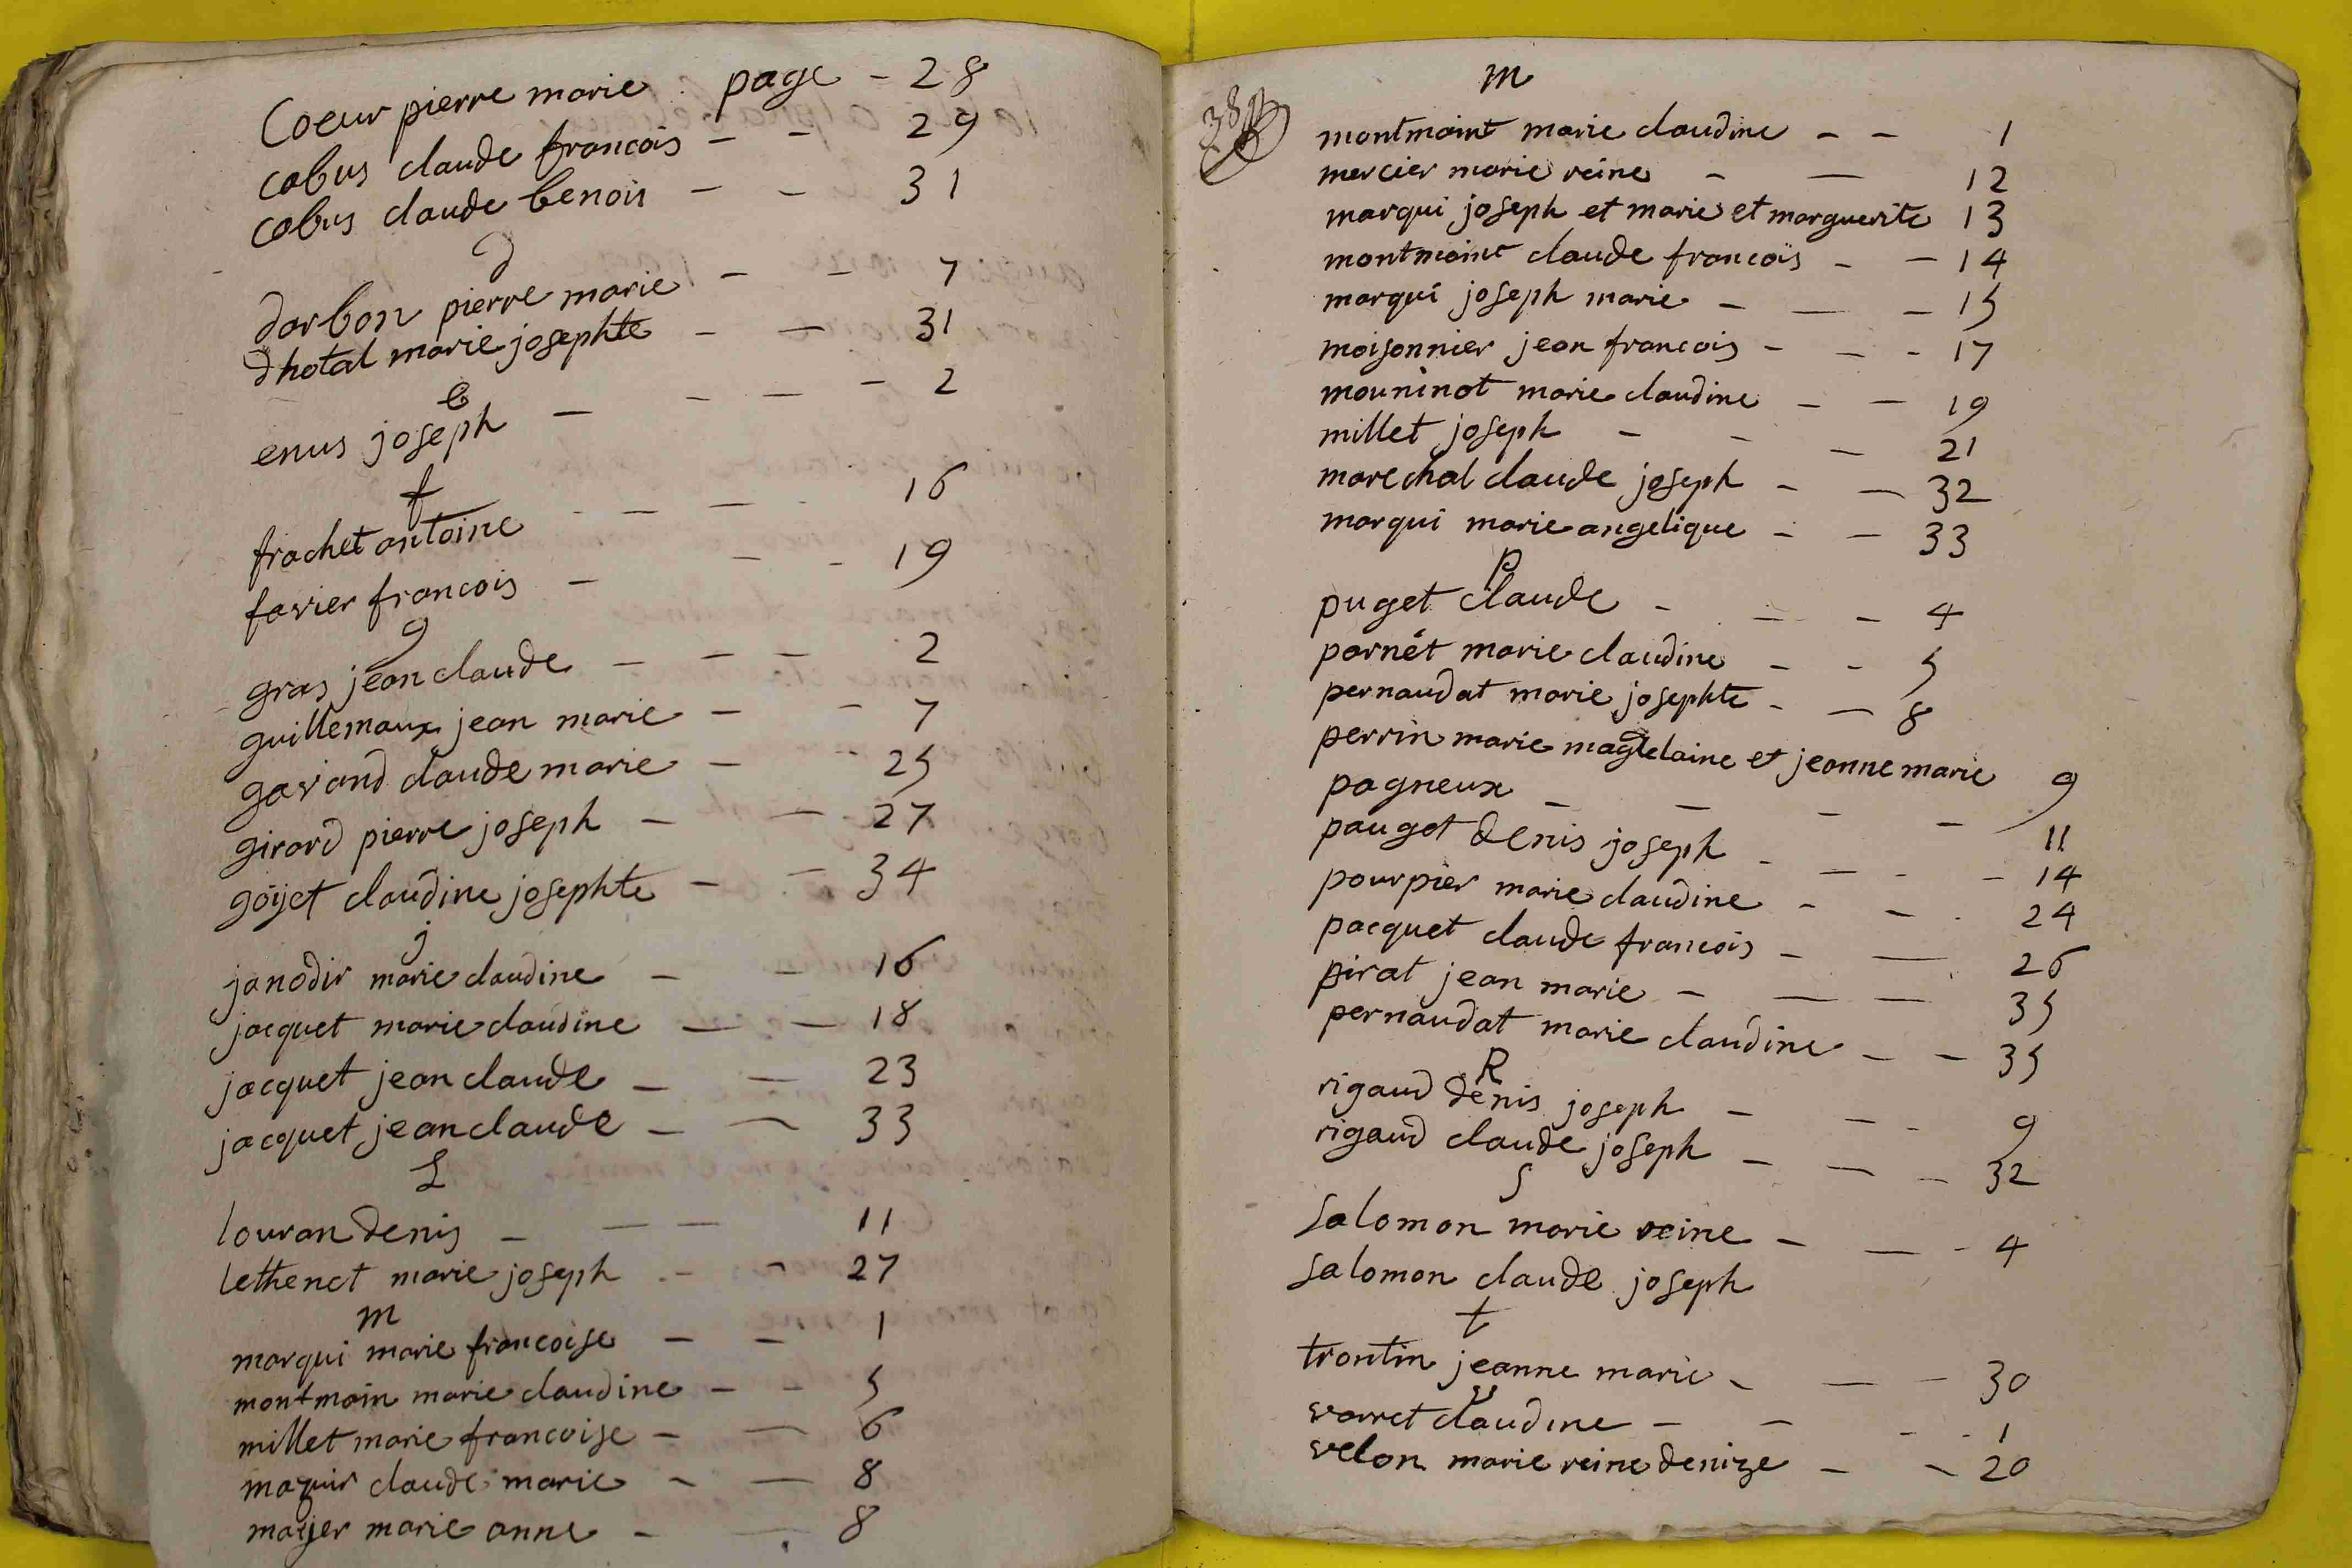 Coeur pierre marie . page - 28
cobus claude francois - - 29
cobus claude benois - - 31
d
darbon pierre marie - - 7
dhotal marie josephte - - 31
e
enus joseph - - - - 2
f
frachet antoine - - - - 16
favier francois - - - 19
g
gras jean claude - - - 2
guillemaux jean marie - - 7
gavand claude marie - - 25
girard pierre joseph - - 27
goijet claudine josephte - - 34
j
janodir marie claudine - - 16
jacquet marie claudine - - 18
jacquet jean claude - - 23
jacquet jean claude - - 33
L
louran denis - - - 11
lethenet marie joseph - - 27
m
marqui marie francoise - - 1
montmain marie claudine - - 5
millet marie francoise - - 6
mazuir claude marie - - 8
majjer marie anne - - 8
m
montmaint marie claudine - - 1
mercier marie reine - - 12
marqui joseph et marie et marguerite 13
montmaint claude francois - - 14
marqui joseph marie - - - 15
moisonnier jean francois - - - 17
mouninot marie claudine - - 19
millet joseph - - - 21
marechal claude joseph - - 32
marqui marie angelique - - 33
p
puget claude - - - 4
parnet marie claudine - - 5
pernaudat marie josephte - - 8
perrin marie magdelaine et jeanne marie 9
pagneux - - - - 11
pauget denis joseph - - - - 14
pourpier marie claudine - - - 24
pacquet claude francois - - 26
pirat jean marie - - - 35
pernaudat marie claudine - - 35
R
rigaud denis joseph - - - 9
rigaud claude joseph - - - 32
S
Salomon marie reine - - - 4
Salomon claude joseph
t
trontin jeanne marie - - - 30
v
varret claudine - - - - 1
velon marie reine denize - - 20